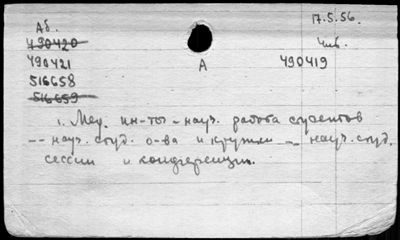 Аб. 17.5.56.
490420 Чив.
490421 А 490419
516658
516659
1. Мед. ин-ты - науч. работа студентов
-- науч. студ. о-ва и кружки -- науч. студ.
сессии и конференции.